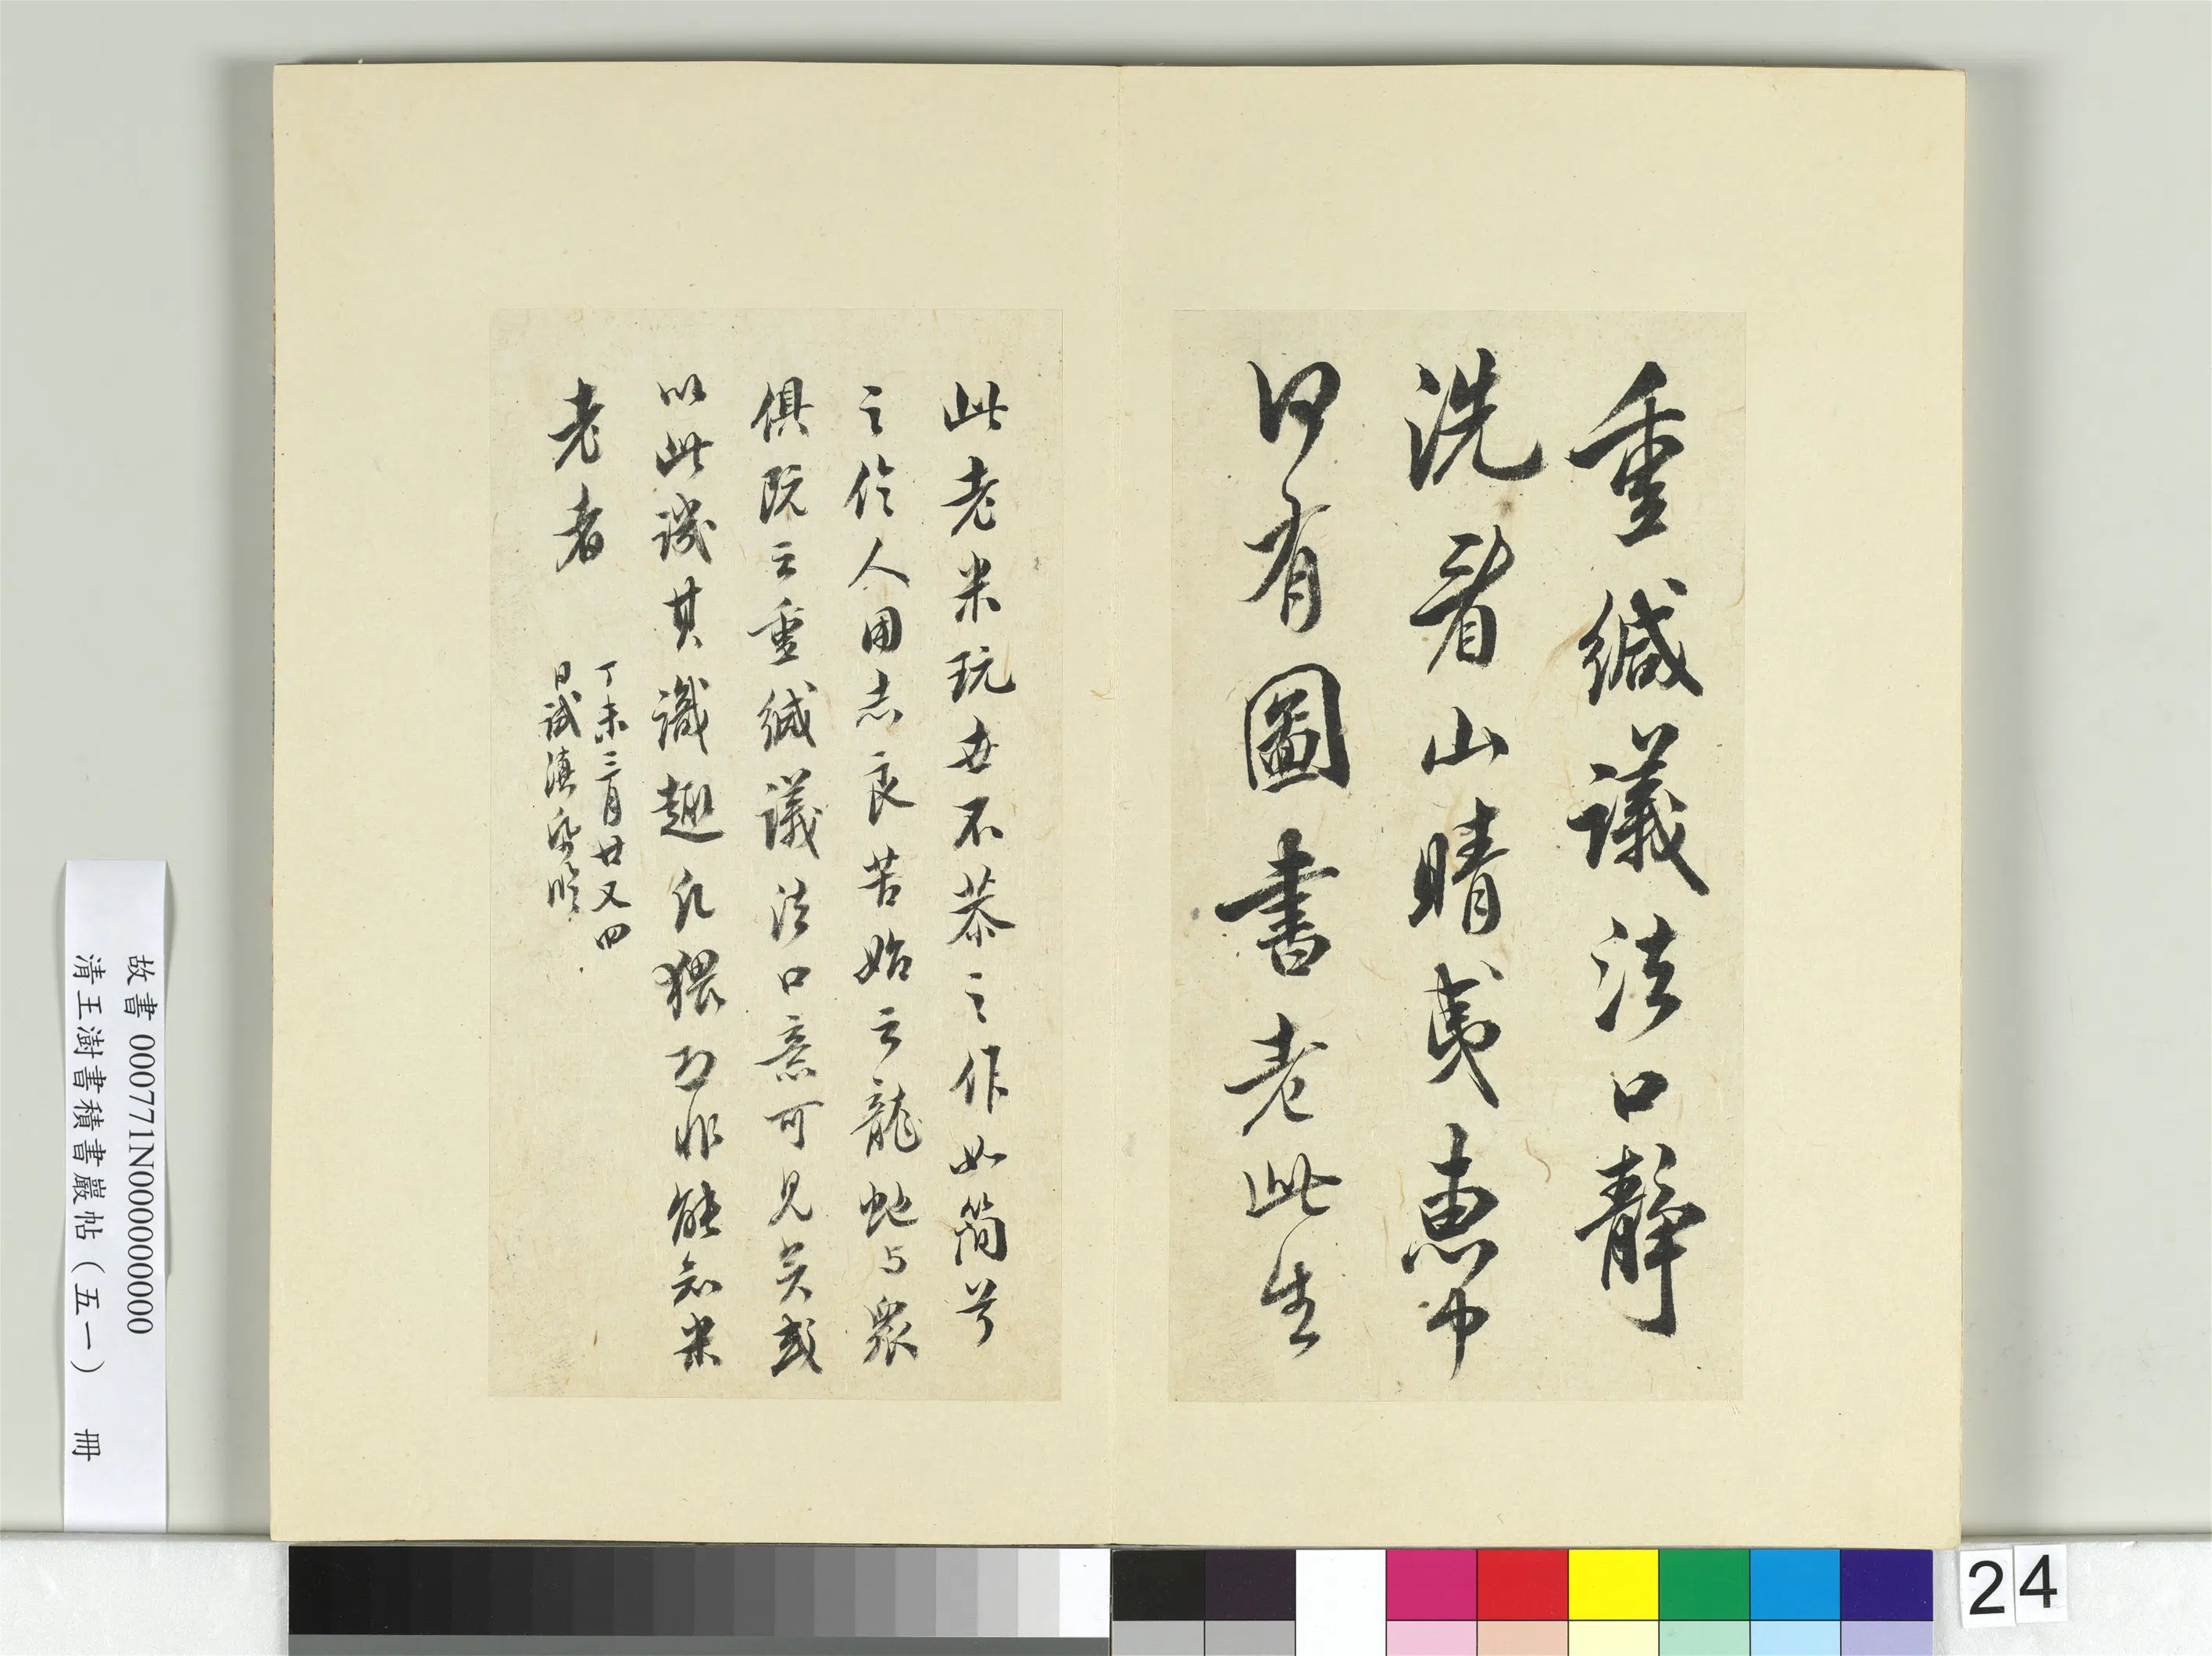 重緘議法口靜
洗看山晴夷惠中
何有圖書老此生
此老米玩世不恭之作如簡兮
之伶人用志良苦始云龍蛇与眾
俱既云重緘議法口意可見矣或
以此譏其識趣凡猥乃非能知米
老者
丁未三月廿又四
日試滇
故書 000771N000000000
清王澍書積書巖帖（五一） 冊
24